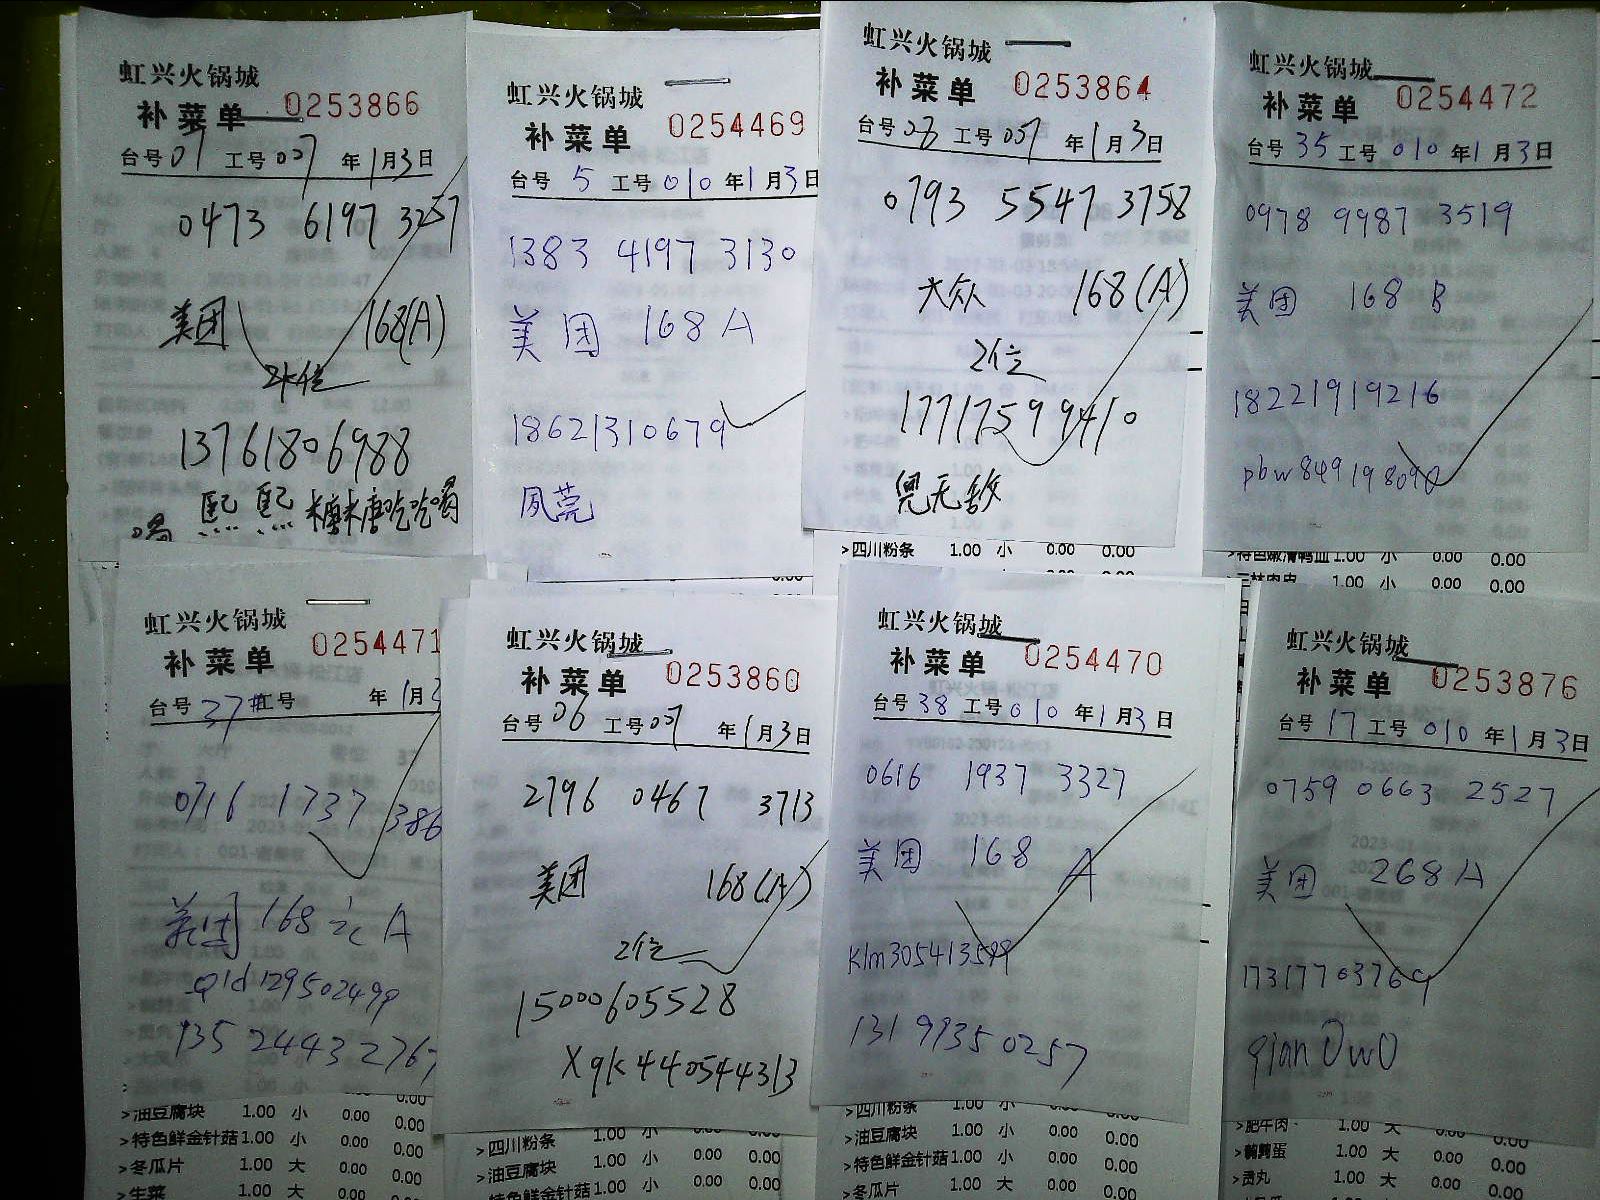 虹兴火锅城
补菜单 0253866
台号 07 工号 007 年 1月3日
0473 6197 3257
美团 168(A)
2位
13761806988
熙熙糖糖吃吃喝
喝
虹兴火锅城
补菜单 0254469
台号 5 工号 010 年1月3日
1383 4197 3130
美团 168 A
18621310679
夙莞
虹兴火锅城
补菜单 0253864
台号 03 工号 007 年1月3日
0793 5547 3758
大众 168(A)
2位
17717599410
兜无敌
虹兴火锅城
补菜单 0254472
台号 35 工号 010 年1月3日
0978 9987 3519
美团 168 B
18221919216
pbw849198090
>四川粉条 1.00 小 0.00 0.00
>特色嫩滑鸭血 1.00 小 0.00 0.00
1.00 小 0.00 0.00
虹兴火锅城
补菜单 0254471
台号 37# 工号 年1月3
0716 1737 386
美团 168元 A
qld129502499
135 2443 2767
>油豆腐块 1.00 小 0.00 0.00
>特色鲜金针菇 1.00 小 0.00 0.00
>冬瓜片 1.00 大 0.00 0.00
>生菜 1.00 大 0.00 0.00
虹兴火锅城
补菜单 0253860
台号 06 工号 007 年1月3日
2796 0467 3713
美团 168(A)
2位
15000605528
xqk440544313
>四川粉条 1.00 小 0.00 0.00
>油豆腐块 1.00 小 0.00 0.00
特色鲜金针菇 1.00 小 0.00 0.00
虹兴火锅城
补菜单 0254470
台号 38 工号 010 年1月3日
0616 1937 3327
美团 168 A
klm305413599
131 9935 0257
>四川粉条 1.00 小 0.00 0.00
>油豆腐块 1.00 小 0.00 0.00
>特色鲜金针菇 1.00 小 0.00 0.00
>冬瓜片 1.00 大 0.00 0.00
虹兴火锅城
补菜单 0253876
台号 17 工号 010 年1月3日
0759 0663 2527
美团 268 A
17317703769
qian0w0
>肥牛肉 1.00 大 0.00 0.00
>鹌鹑蛋 1.00 大 0.00 0.00
>贡丸 1.00 大 0.00 0.00